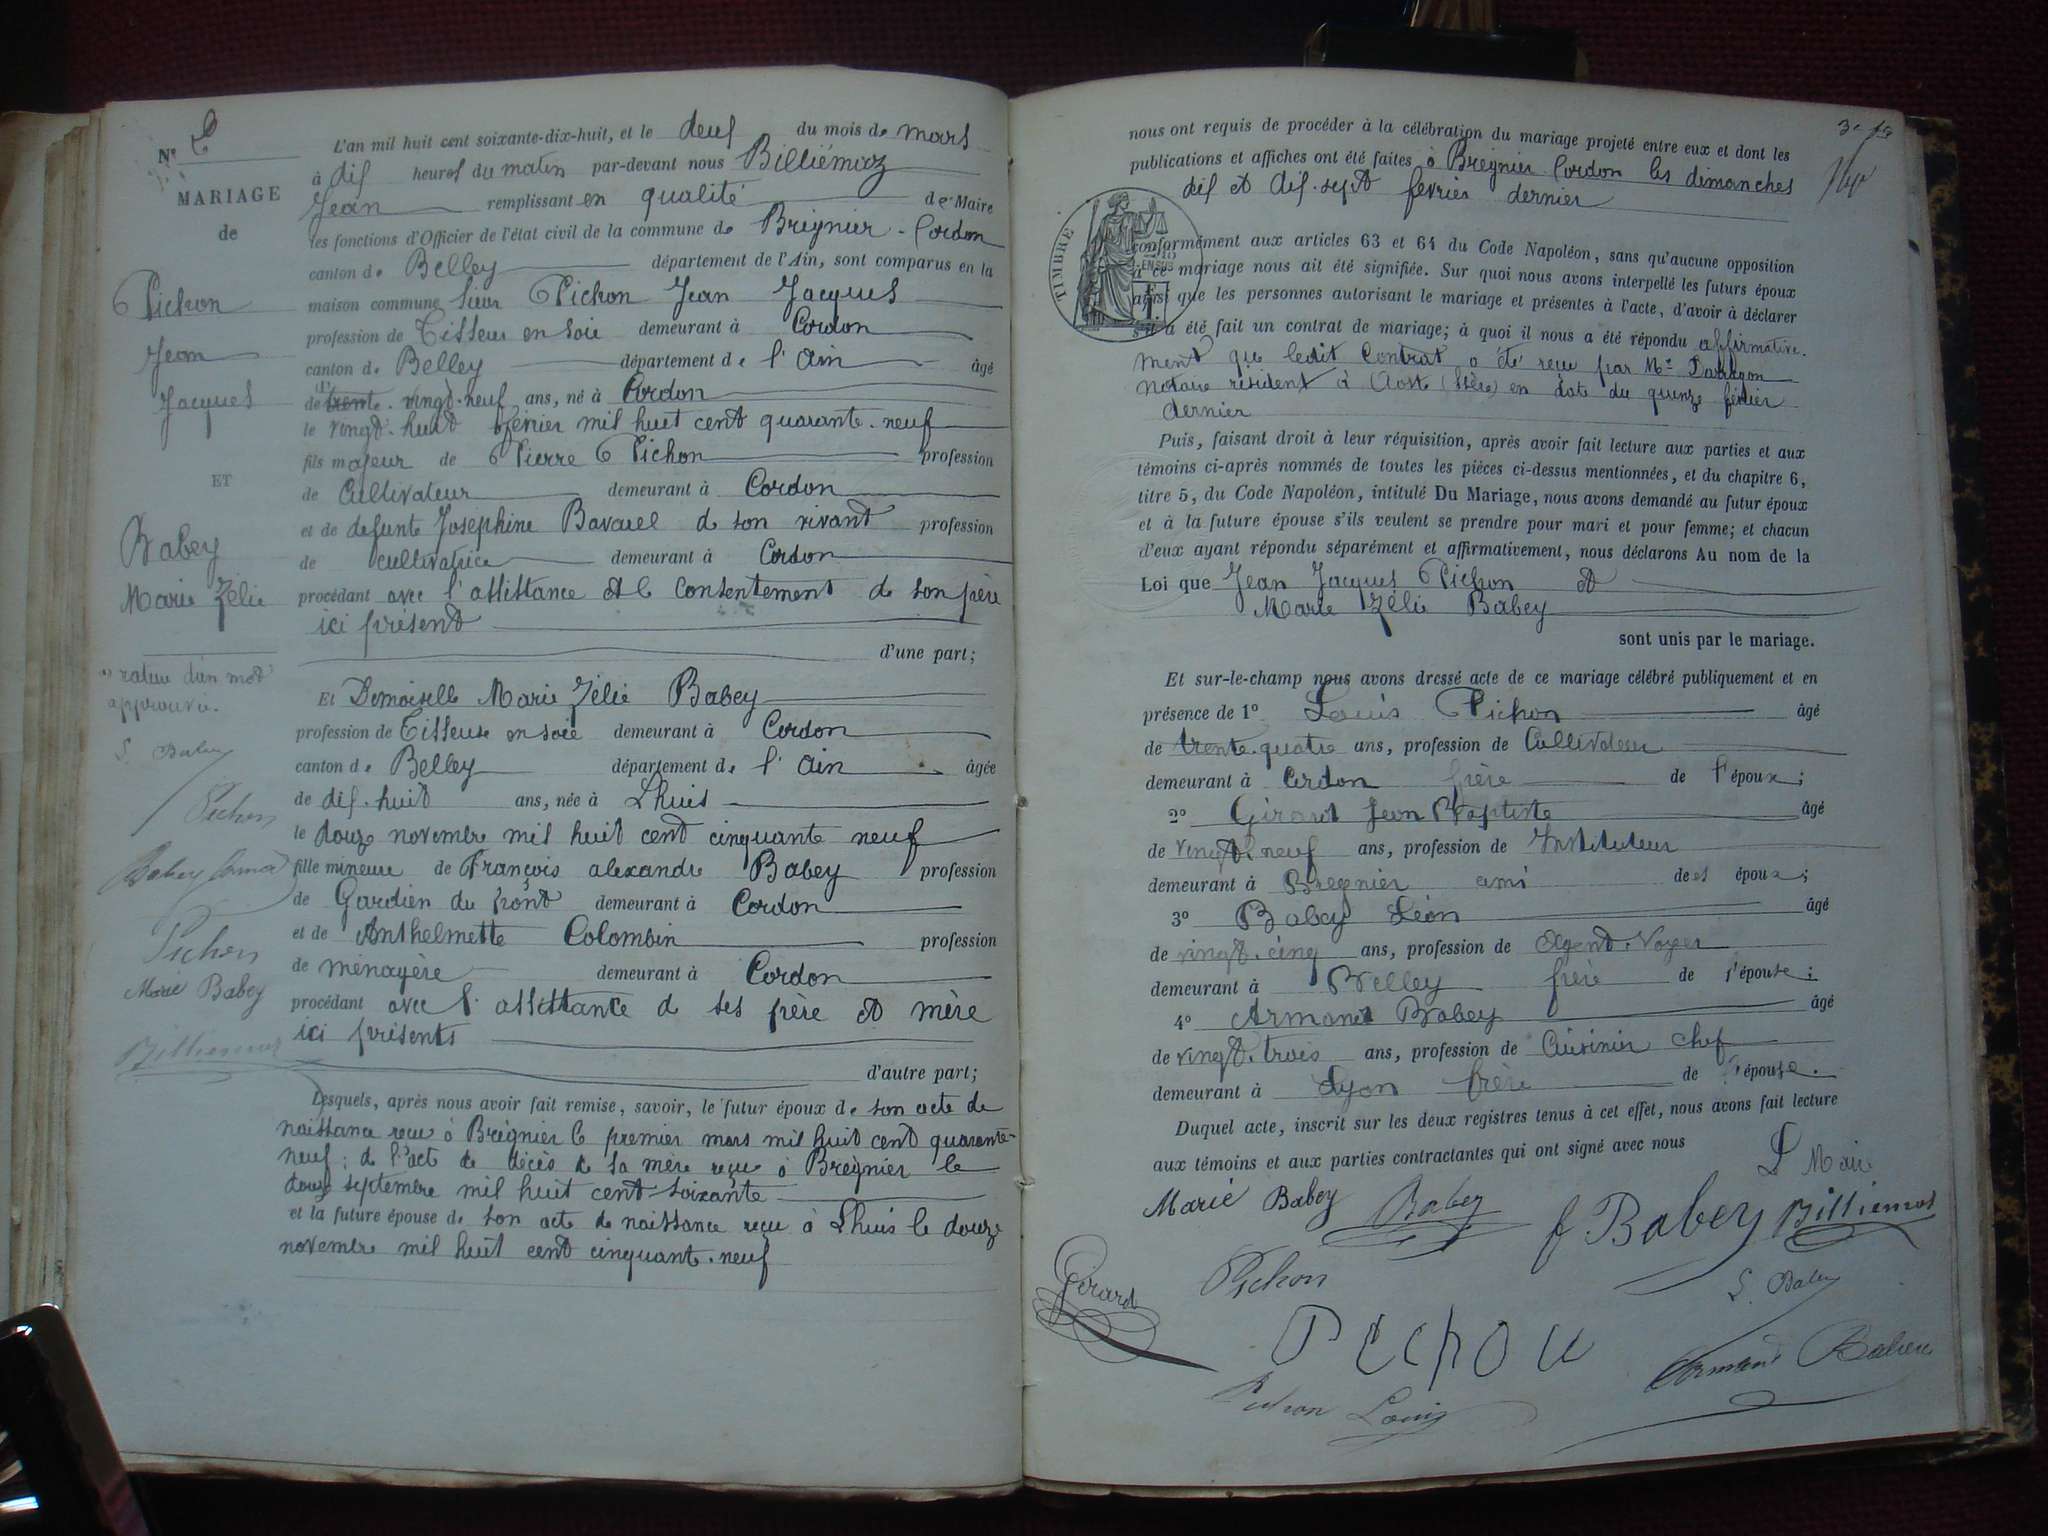 Nº 2
MARIAGE
de
Pichon
Jean
Jacques
ET
Babey
Marie Zélie
(1) rature d'un mot
approuvée.
L. Babey
Pichon
Babey Armand
Pichon
Marie Babey
Billiemoz
L'an mil huit cent soixante-dix-huit, et le deux du mois de mars
à dix heures du matin par-devant nous Billiémioz
Jean remplissant en qualité de Maire
les fonctions d'Officier de l'état civil de la commune de Brégnier-Cordon
canton de Belley département de l'Ain, sont comparus en la
maison commune sieur Pichon Jean Jacques
profession de Tisseur en soie demeurant à Cordon
canton de Belley département de l'Ain âgé
de trente vingt-neuf ans, né à Cordon
le vingt-huit février mil huit cent quarante-neuf
fils majeur de Pierre Pichon profession
de Cultivateur demeurant à Cordon
et de defunte Joséphine Bavuel de son vivant profession
de cultivatrice demeurant à Cordon
procédant avec l'assistance et le consentement de son père
ici présent
d'une part;
Et Demoiselle Marie Zélie Babey
profession de Tisseuse en soie demeurant à Cordon
canton de Belley département de l'Ain âgée
de dix-huit ans, née à Lhuis
le douze novembre mil huit cent cinquante neuf
fille mineure de François alexandre Babey profession
de Gardien du Pont demeurant à Cordon
et de Anthelmette Colombin profession
de ménagère demeurant à Cordon
procédant avec l'assistance de ses père et mère
ici présents
d'autre part;
Lesquels, après nous avoir fait remise, savoir, le futur époux de son acte de
naissance reçu à Brégnier le premier mars mil huit cent quarante-
neuf; de l'acte de décès de sa mère reçu à Brégnier le
douze septembre mil huit cent soixante
et la future épouse de son acte de naissance reçu à Lhuis le douze
novembre mil huit cent cinquant-neuf
nous ont requis de procéder à la célébration du mariage projeté entre eux et dont les
publications et affiches ont été faites à Brégnier Cordon les dimanches
dix et dix-sept février dernier
TIMBRE
conformément aux articles 63 et 64 du Code Napoléon, sans qu'aucune opposition
à ce mariage nous ait été signifiée. Sur quoi nous avons interpellé les futurs époux
ainsi que les personnes autorisant le mariage et présentes à l'acte, d'avoir à déclarer
s'il a été fait un contrat de mariage; à quoi il nous a été répondu affirmative-
ment que ledit Contrat a été reçu par Me
notaire résident à Aoste (Isère) en date du quinze février
dernier
Puis, faisant droit à leur réquisition, après avoir fait lecture aux parties et aux
témoins ci-après nommés de toutes les pièces ci-dessus mentionnées, et du chapitre 6,
titre 5, du Code Napoléon, intitulé Du Mariage, nous avons demandé au futur époux
et à la future épouse s'ils veulent se prendre pour mari et pour femme; et chacun
d'eux ayant répondu séparément et affirmativement, nous déclarons Au nom de la
Loi que Jean Jacques Pichon et
Marie Zélie Babey
sont unis par le mariage.
Et sur-le-champ nous avons dressé acte de ce mariage célébré publiquement et en
présence de 1º Louis Pichon âgé
de trente-quatre ans, profession de Cultivateur
demeurant à Cordon frère de l'époux;
2º Girard Jean Baptiste âgé
de vingt-neuf ans, profession de Instituteur
demeurant à Brégnier ami des époux;
3º Babey Léon âgé
de vingt-cinq ans, profession de Agent-Voyer
demeurant à Belley frère de l'épouse;
4º Armand Babey âgé
de vingt-trois ans, profession de Cuisinier chef
demeurant à Lyon frère de l'épouse.
Duquel acte, inscrit sur les deux registres tenus à cet effet, nous avons fait lecture
aux témoins et aux parties contractantes qui ont signé avec nous
L Maire
Marie Babey Babey f Babey Billiemoz
Girard Pichon L. Babey
Pichon
Pichon Louis Armand Babey